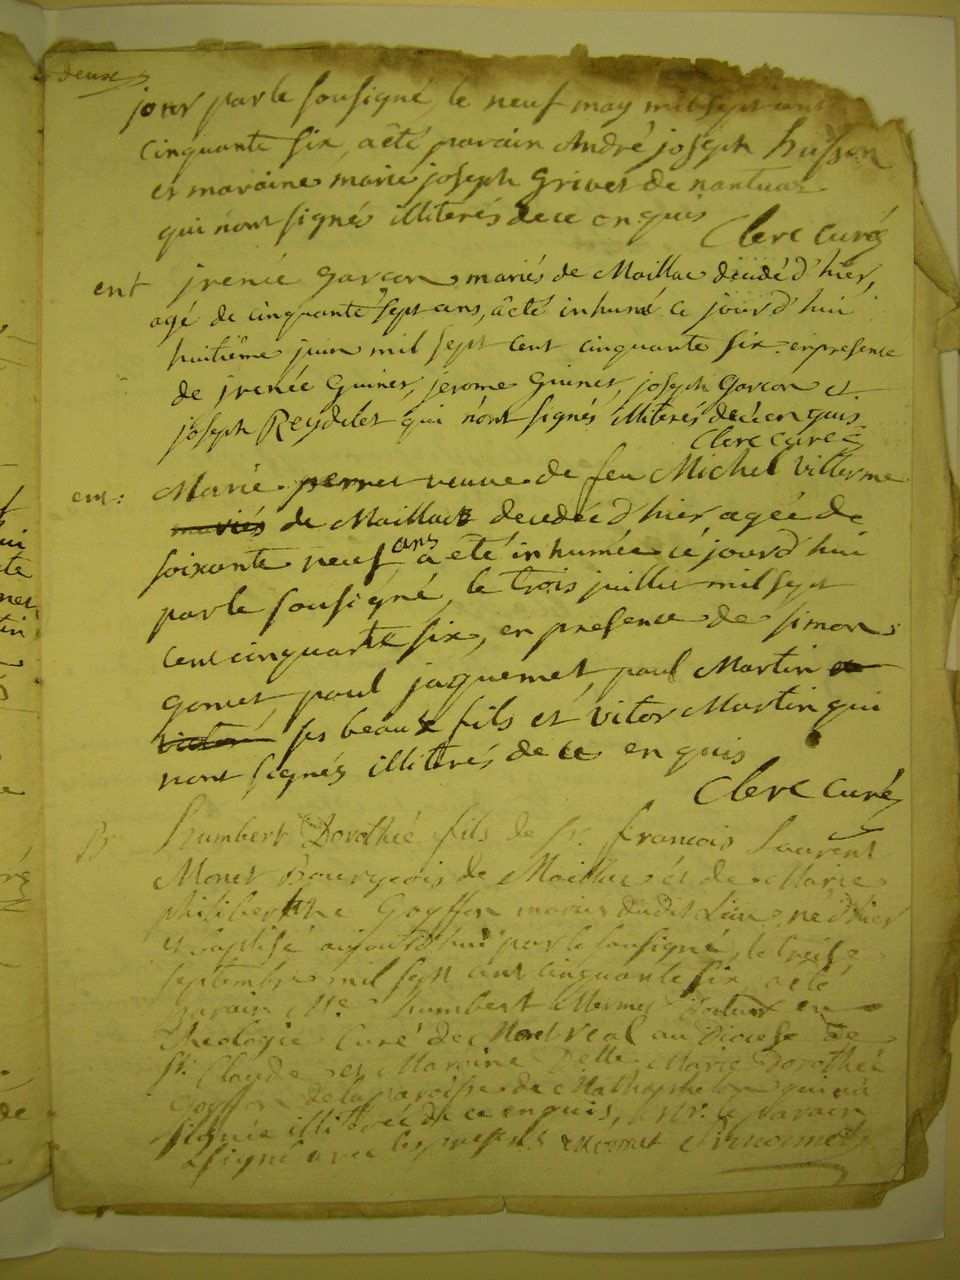 deux
jour par le sousigné, le neuf may mil sept cent
cinquante six, a èté parain André joseph husson
et maraine marie joseph Grivet de nantua
qui n'ont signés illiterés de ce enquis
Clerc curé
ent jrenée garcon mariés de Maillac decedé d'hier,
agé de cinquante sept ans, à èté inhumé ce jourd'hui
huitième juin mil sept cent cinquante six en presence
de jrenée Guinet, jerome Guinet, joseph garcon et
joseph Reydelet qui n'ont signés illiterés de ce enquis
Clerc curé
ent: Marie pernet veuve de feu Michel Villerme
mariés de Maillac decedée d'hier, agée de
soixante neuf ans a eté inhumée ce jourd'hui
par le sousigné, le trois juillet mil sept
cent cinquante six, en presence de simon
gomet, paul jaquemet, paul Martin et
victor ses beaux fils et vitor Martin qui
n'ont signés illiterés de ce en quis
Clerc curé
B: humbert Dorothée fils de Sr. francois Laurent
Monet Bourgeois de Maillac et de Marie
philiberthe Goyffon mariés dudit Lieu, né d'hier
et baptisé aujourd'hui par le sousigné, le treise
septembre mil sept cent cinquante six, a eté
parain Mre. humbert Mermet Docteur en
Theologie Curé de Montreal au Diocese de
St. Claude et Maraine Delle Marie Dorothée
Goyffon de la paroisse de Mathaphelon qui n'a
signée illiterée de ce enquis, Mr. le parain
a signé avec les presents